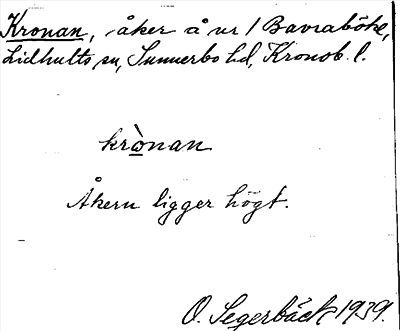 Kronan, åker å nr 1 Bavraböke,
Lidhults sn, Sunnerbo hd, Kronob. l.
krònan
Åkern ligger högt.
O. Segerbäck 1939.